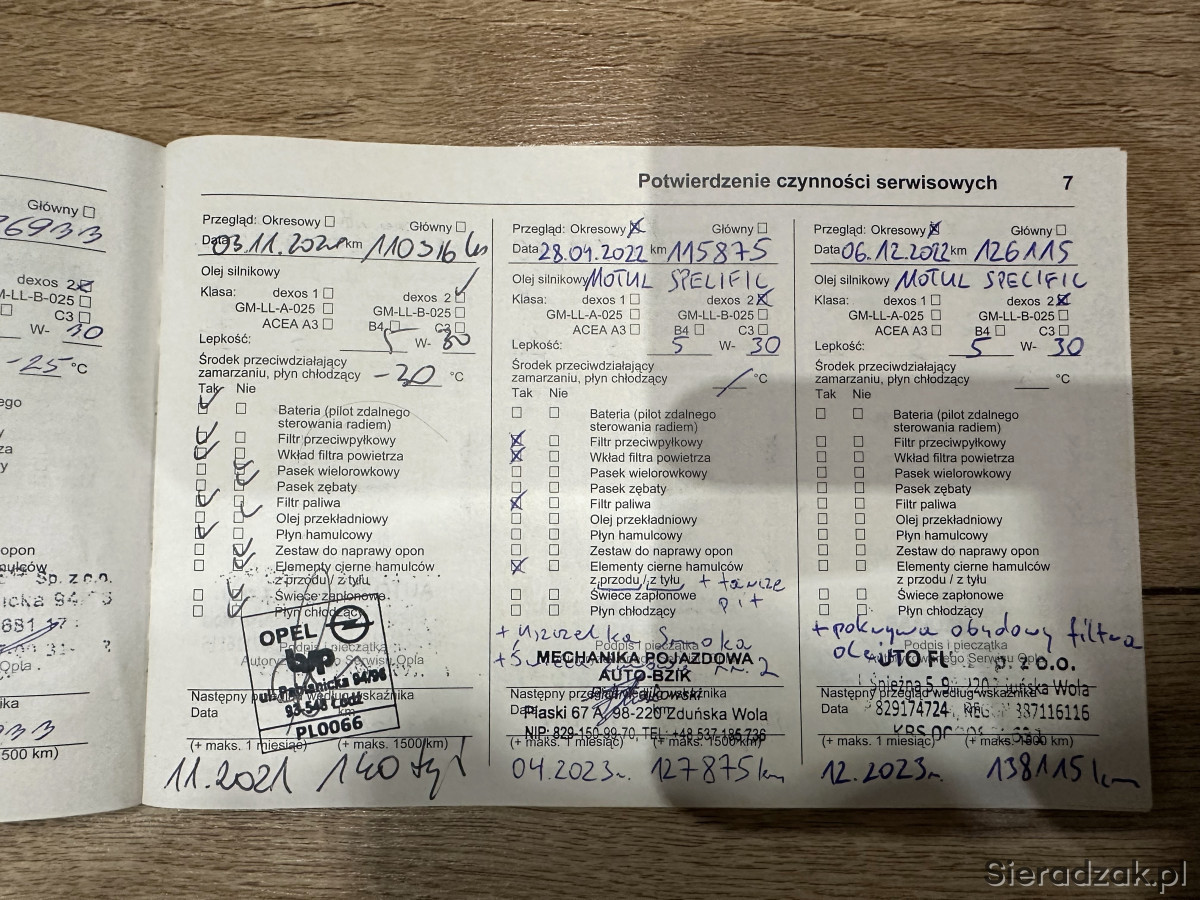 Potwierdzenie czynności serwisowych 7
Główny
dexos 2
GM-LL-B-025
C3
W- 30
-25 °C
opon
hamulców
Sp. z o.o.
Opla
1500 km)
Przegląd: Okresowy Główny
Data 03.11. km 110316 km
Olej silnikowy
Klasa: dexos 1 dexos 2
GM-LL-A-025 GM-LL-B-025
ACEA A3 B4 C3
Lepkość: 5 W- 30
Środek przeciwdziałający
zamarzaniu, płyn chłodzący -30 °C
Tak Nie
Bateria (pilot zdalnego
sterowania radiem)
Filtr przeciwpyłkowy
Wkład filtra powietrza
Pasek wielorowkowy
Pasek zębaty
Filtr paliwa
Olej przekładniowy
Płyn hamulcowy
Zestaw do naprawy opon
Elementy cierne hamulców
z przodu / z tyłu
Świece zapłonowe
Płyn chłodzący
OPEL
Podpis i pieczątka
Autoryzowanego Serwisu Opla
ul. Pabianicka 94/96
93-545 Łódź
PL0066
Następny przegląd według wskaźnika
Data km
(+ maks. 1 miesiąc) (+ maks. 1500 km)
11.2021 140 tyś
Przegląd: Okresowy Główny
Data 28.04.2022 km 115875
Olej silnikowy MOTUL SPECIFIC
Klasa: dexos 1 dexos 2
GM-LL-A-025 GM-LL-B-025
ACEA A3 B4 C3
Lepkość: 5 W- 30
Środek przeciwdziałający
zamarzaniu, płyn chłodzący °C
Tak Nie
Bateria (pilot zdalnego
sterowania radiem)
Filtr przeciwpyłkowy
Wkład filtra powietrza
Pasek wielorowkowy
Pasek zębaty
Filtr paliwa
Olej przekładniowy
Płyn hamulcowy
Zestaw do naprawy opon
Elementy cierne hamulców
z przodu / z tyłu + tarcze
Świece zapłonowe p i t
Płyn chłodzący
+ uszczelka smoka
Podpis i pieczątka
MECHANIKA POJAZDOWA
AUTO-BZIK
Następny przegląd według wskaźnika
Data
Piaski 67 A, 98-220 Zduńska Wola
NIP: 829-150-99-70, TEL: +48 537 185 736
(+ maks. 1 miesiąc) (+ maks. 1500 km)
04.2023r. 127875 km
Przegląd: Okresowy Główny
Data 06.12.2022 km 126115
Olej silnikowy MOTUL SPECIFIC
Klasa: dexos 1 dexos 2
GM-LL-A-025 GM-LL-B-025
ACEA A3 B4 C3
Lepkość: 5 W- 30
Środek przeciwdziałający
zamarzaniu, płyn chłodzący °C
Tak Nie
Bateria (pilot zdalnego
sterowania radiem)
Filtr przeciwpyłkowy
Wkład filtra powietrza
Pasek wielorowkowy
Pasek zębaty
Filtr paliwa
Olej przekładniowy
Płyn hamulcowy
Zestaw do naprawy opon
Elementy cierne hamulców
z przodu / z tyłu
Świece zapłonowe
Płyn chłodzący
+ pokrywa obudowy filtra
Podpis i pieczątka
Autoryzowanego Serwisu Opla
Zduńska Wola
Następny przegląd według wskaźnika
Data 829174724 387116116
(+ maks. 1 miesiąc) (+ maks. 1500 km)
12.2023r. 138115 km
Sieradzak.pl